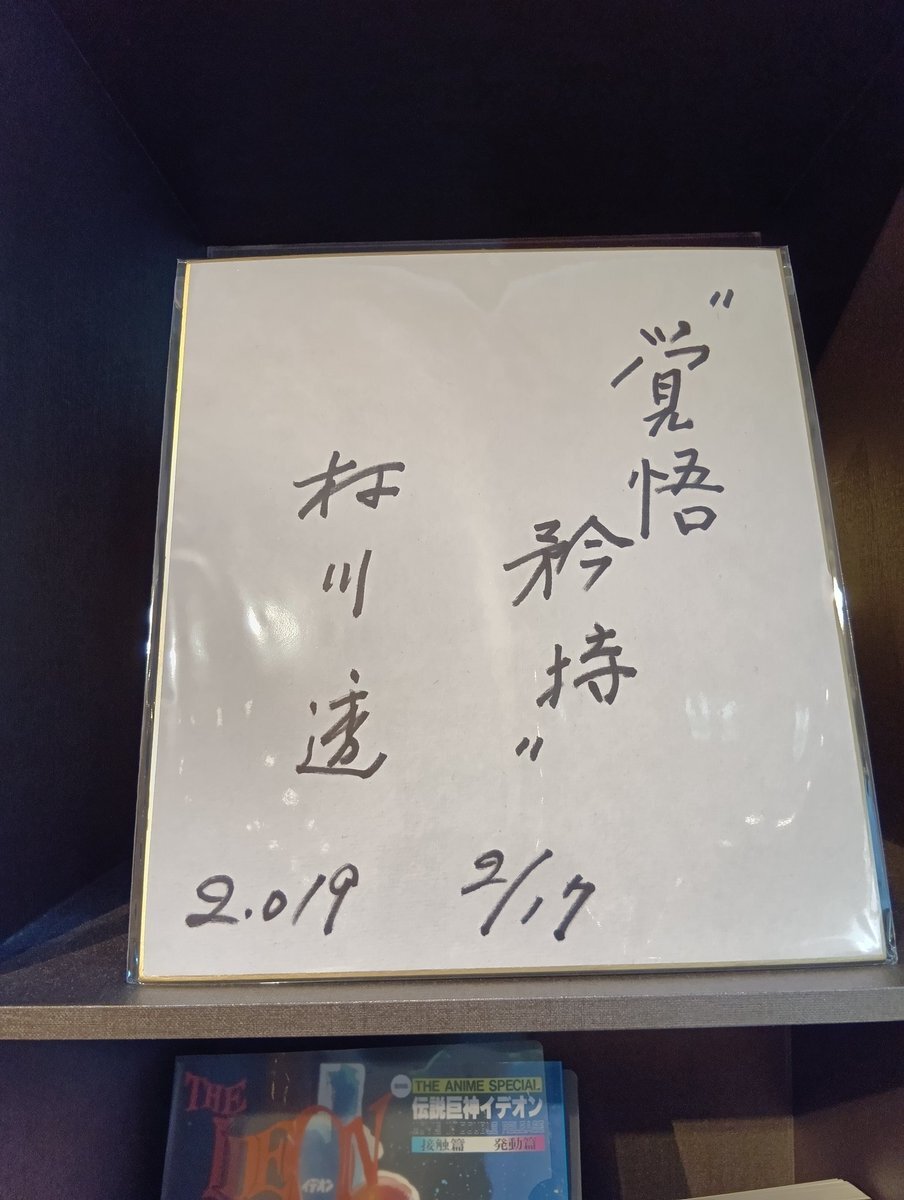 "覚悟
矜持"
村川透
2.019 2/17
THE ANIME SPECIAL
伝説巨神イデオン
接触篇 発動篇
THE IDEON
イデオン